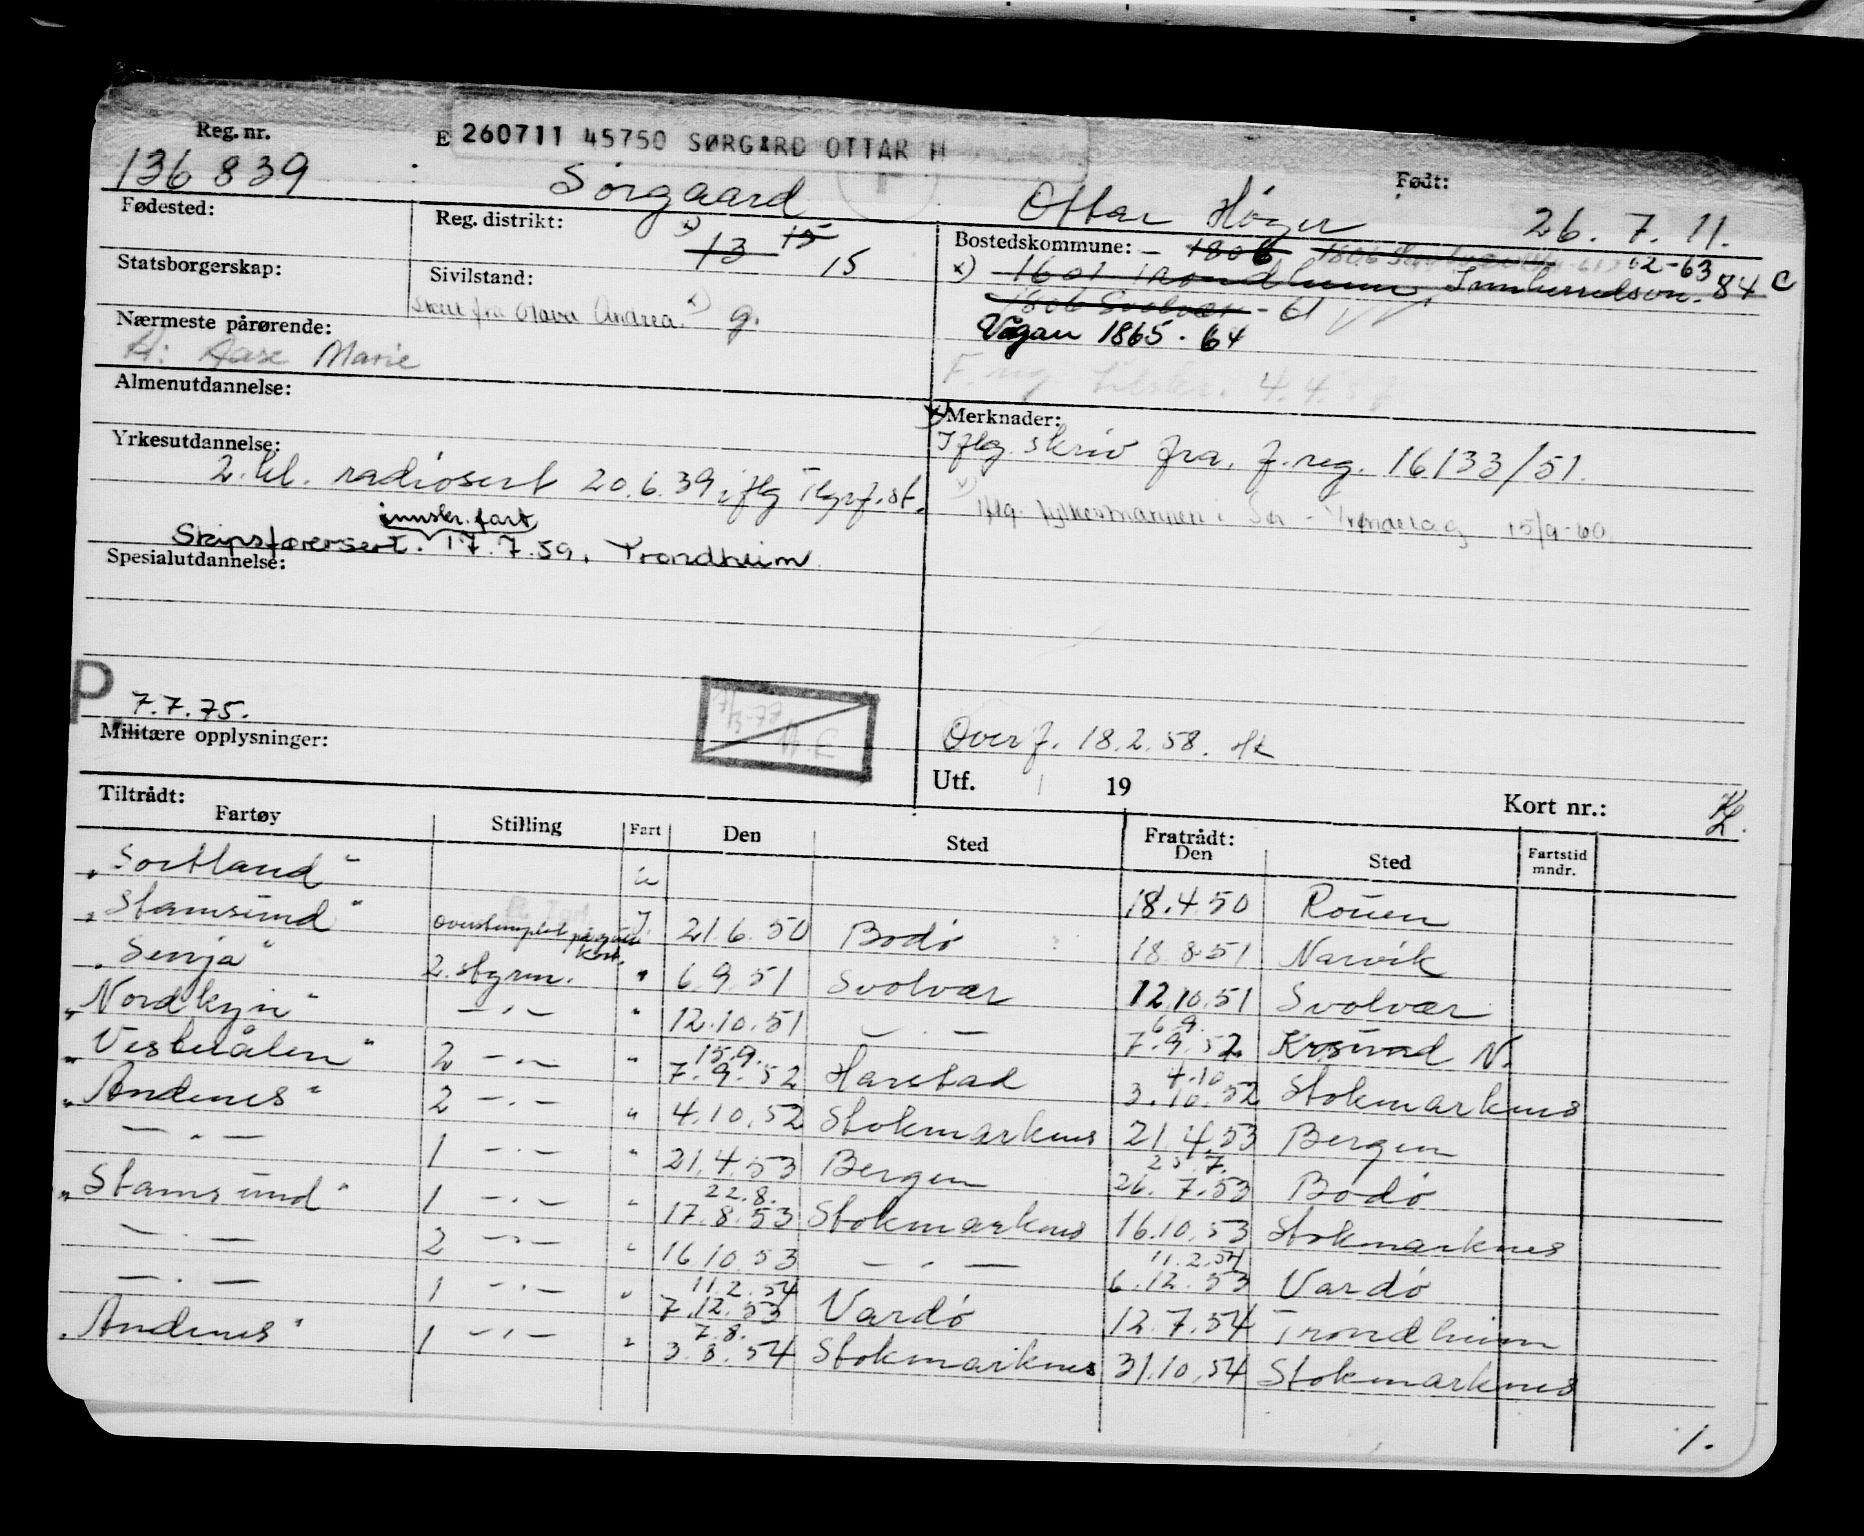 Reg. nr.
E 260711 45750 SØRGARD OTTAR H
136 839
Sørgaard
Ottar Høyer
Født:
26. 7. 11.
Fødested:
Reg. distrikt:
x) 13 15 15
Bostedskommune: - 1806 1806 62-63
x) 1601 Trondheim, 84 C
Statsborgerskap:
Sivilstand:
1806 Svolvær - 61
Skilt fra Olava Andrea. x) g.
Vågan 1865 - 64
Nærmeste pårørende:
H: Aase Marie
4.4.
Almenutdannelse:
Merknader:
Iflg. skriv fra f.reg. 16133/51.
Yrkesutdannelse:
2. kl. radiosert 20.6.39 iflg Tlgrf.st.
iflg. fylkesmannen i Sør-Trøndelag 15/9-60.
innskr. fart
Skipsførersert. 17.7.59, Trondheim
Spesialutdannelse:
P 7.7.75.
Overf. 18.2.58. Hk
Militære opplysninger:
Utf. 19
Kort nr.:
Tiltrådt:
Fartøy Stilling Fart Den Sted Fratrådt: Den Sted Fartstid mndr.
"Sortland" u 18.4.50 Rouen
"Stamsund" overstemplet på grønt kort. I 21.6.50 Bodø 18.8.51 Narvik
"Senja" 2. styrm. " 6.9.51 Svolvær 12.10.51 Svolvær
"Nordkyn" — . — " 12.10.51 — . — 6.9. 7.9.52 Krsund N.
"Vesterålen" 2 — . — " 15.9. 7.9.52 Harstad 4.10 3.10.52 Stokmarknes
"Andenes" 2 — . — " 4.10.52 Stokmarknes 21.4.53 Bergen
— " — 1 — . — " 21.4.53 Bergen 25.7. 26.7.53 Bodø
"Stamsund" 1 — . — " 22.8. 17.8.53 Stokmarknes 16.10.53 Stokmarknes
— . — 2 — . — " 16.10.53 — " — 11.2.54 6.12.53 Vardø
— . — 1 — . — " 11.2.54 7.12.53 Vardø 12.7.54 Trondheim
"Andenes" 1 — . — " 7.8. 3.8.54 Stokmarknes 31.10.54 Stokmarknes
1.